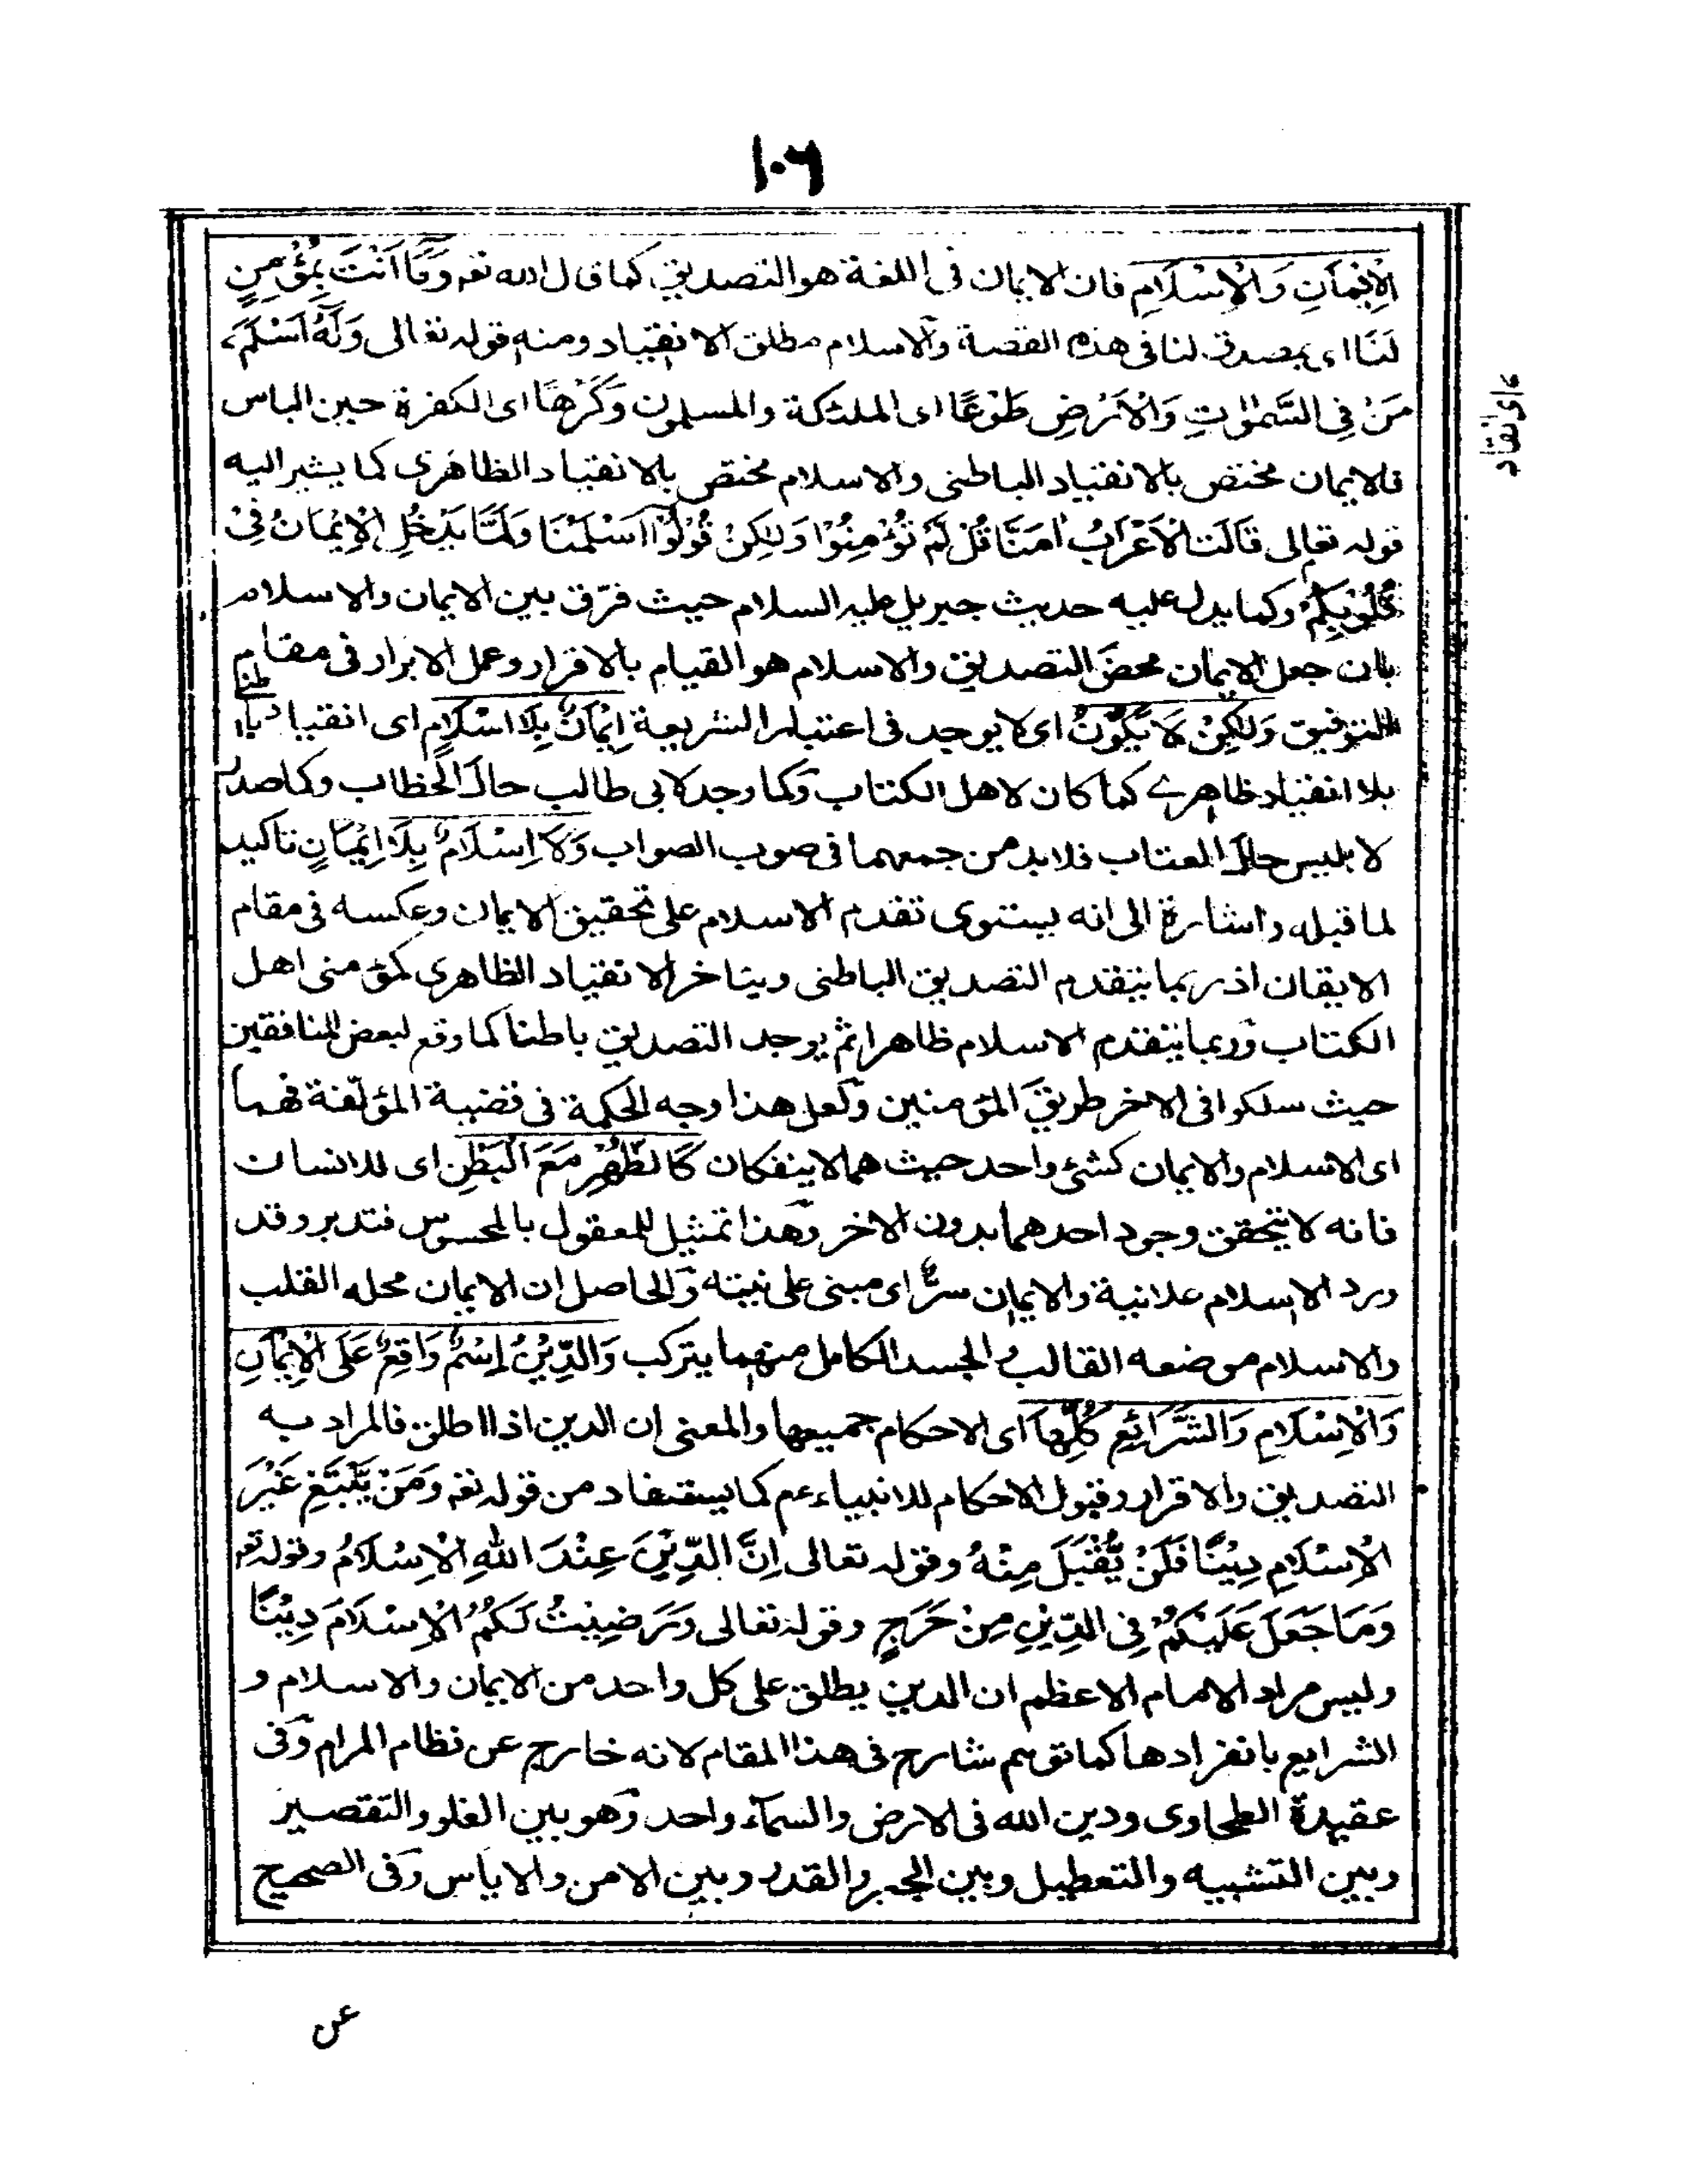 ١٠٦
الْاِیْمَانِ وَالْاِسْلَامِ فان الایمان فی اللغة هو التصدیق کما قال الله تعہ وَمَا اَنْتَ بِمُؤْمِنٍ
لَنَا ای بمصدق لنا فی هذه القصة والاسلام مطلق الانقیاد ومنه قوله تعالی وَلَهٗ اَسْلَمَ
مَنْ فِی السَّمٰوٰتِ وَالْاَرْضِ طَوْعًا ای الملئکة والمسلمون وَكَرْهًا ای الکفرة حین الباس
فالایمان مختص بالانقیاد الباطنی والاسلام مختص بالانقیاد الظاهری کما یشیر الیه
قوله تعالی قَالَتِ الْاَعْرَابُ اٰمَنَّا قُلْ لَمْ تُؤْمِنُوْا وَلٰكِنْ قُوْلُوْا اَسْلَمْنَا وَلَمَّا یَدْخُلِ الْاِیْمَانُ فِیْ
قُلُوْبِكُمْ وکما یدل علیه حدیث جبریل علیه السلام حیث فرّق بین الایمان والاسلام
بان جعل الایمان محضَ التصدیق والاسلام هو القیام بالاقرار وعمل الابرار فی مقام
التوفیق وَلٰكِنْ لَا یَكُوْنُ ای لا یوجد فی اعتبار الشریعة اِیْمَانٌ بِلَا اِسْلَامٍ ای انقیاد باطنی
بلا انقیاد ظاهرے کما کان لاهل الکتاب وکما وجد لابی طالب حال الخطاب وکما صدر
لابلیس حال العتاب فلابد من جمعهما فی صوب الصواب وَلَا اِسْلَامٌ بِلَا اِیْمَانٍ تاکید
لما قبله واشارة الی انه یستوی تقدم الاسلام علی تحقیق الایمان وعکسه فی مقام
الایقان اذ ربما یتقدم التصدیق الباطنی ویتاخر الانقیاد الظاهری کمؤمنی اهل
الکتاب وربما یتقدم الاسلام ظاهرا ثم یوجد التصدیق باطنا کما وقع لبعض المنافقین
حیث سلکوا فی الاخر طریقَ المؤمنین ولعل هذا وجه الحکمة فی قضیة المؤلّفة فهما
ای الاسلام والایمان کشئ واحد حیث هما لا ینفکان كَالظَّهْرِ مَعَ الْبَطْنِ ای للانسان
فانه لا یتحقق وجود احدهما بدون الاخر وهذا تمثیل للمعقول بالمحسوس فتدبر وقد
ورد الاسلام علانیة والایمان سرٌّ ای مبنی علی نیته والحاصل ان الایمان محله القلب
والاسلام موضعه القالب والجسد الکامل منهما یترکب وَالدِّیْنُ اِسْمٌ وَاقِعٌ عَلَی الْاِیْمَانِ
وَالْاِسْلَامِ وَالشَّرَائِعِ كُلِّهَا ای الاحکام جمیعها والمعنی ان الدین اذا اطلق فالمراد به
التصدیق والاقرار وقبول الاحکام للانبیاء عم کما یستفاد من قوله تعہ وَمَنْ یَّبْتَغِ غَیْرَ
الْاِسْلَامِ دِیْنًا فَلَنْ یُّقْبَلَ مِنْهُ وقوله تعالی اِنَّ الدِّیْنَ عِنْدَ اللهِ الْاِسْلَامُ وقوله تعہ
وَمَا جَعَلَ عَلَیْكُمْ فِی الدِّیْنِ مِنْ حَرَجٍ وقوله تعالی وَرَضِیْتُ لَكُمُ الْاِسْلَامَ دِیْنًا
ولیس مراد الامام الاعظم ان الدین یطلق علی کل واحد من الایمان والاسلام و
الشرایع بانفرادها کما توهم شارح فی هذا المقام لانه خارج عن نظام المرام وفی
عقیدة الطحاوی ودین الله فی الارض والسمآء واحد وهو بین الغلو والتقصیر
وبین التشبیه والتعطیل وبین الجبر والقدر وبین الامن والایاس وفی الصحیح
ای انقاد
عن